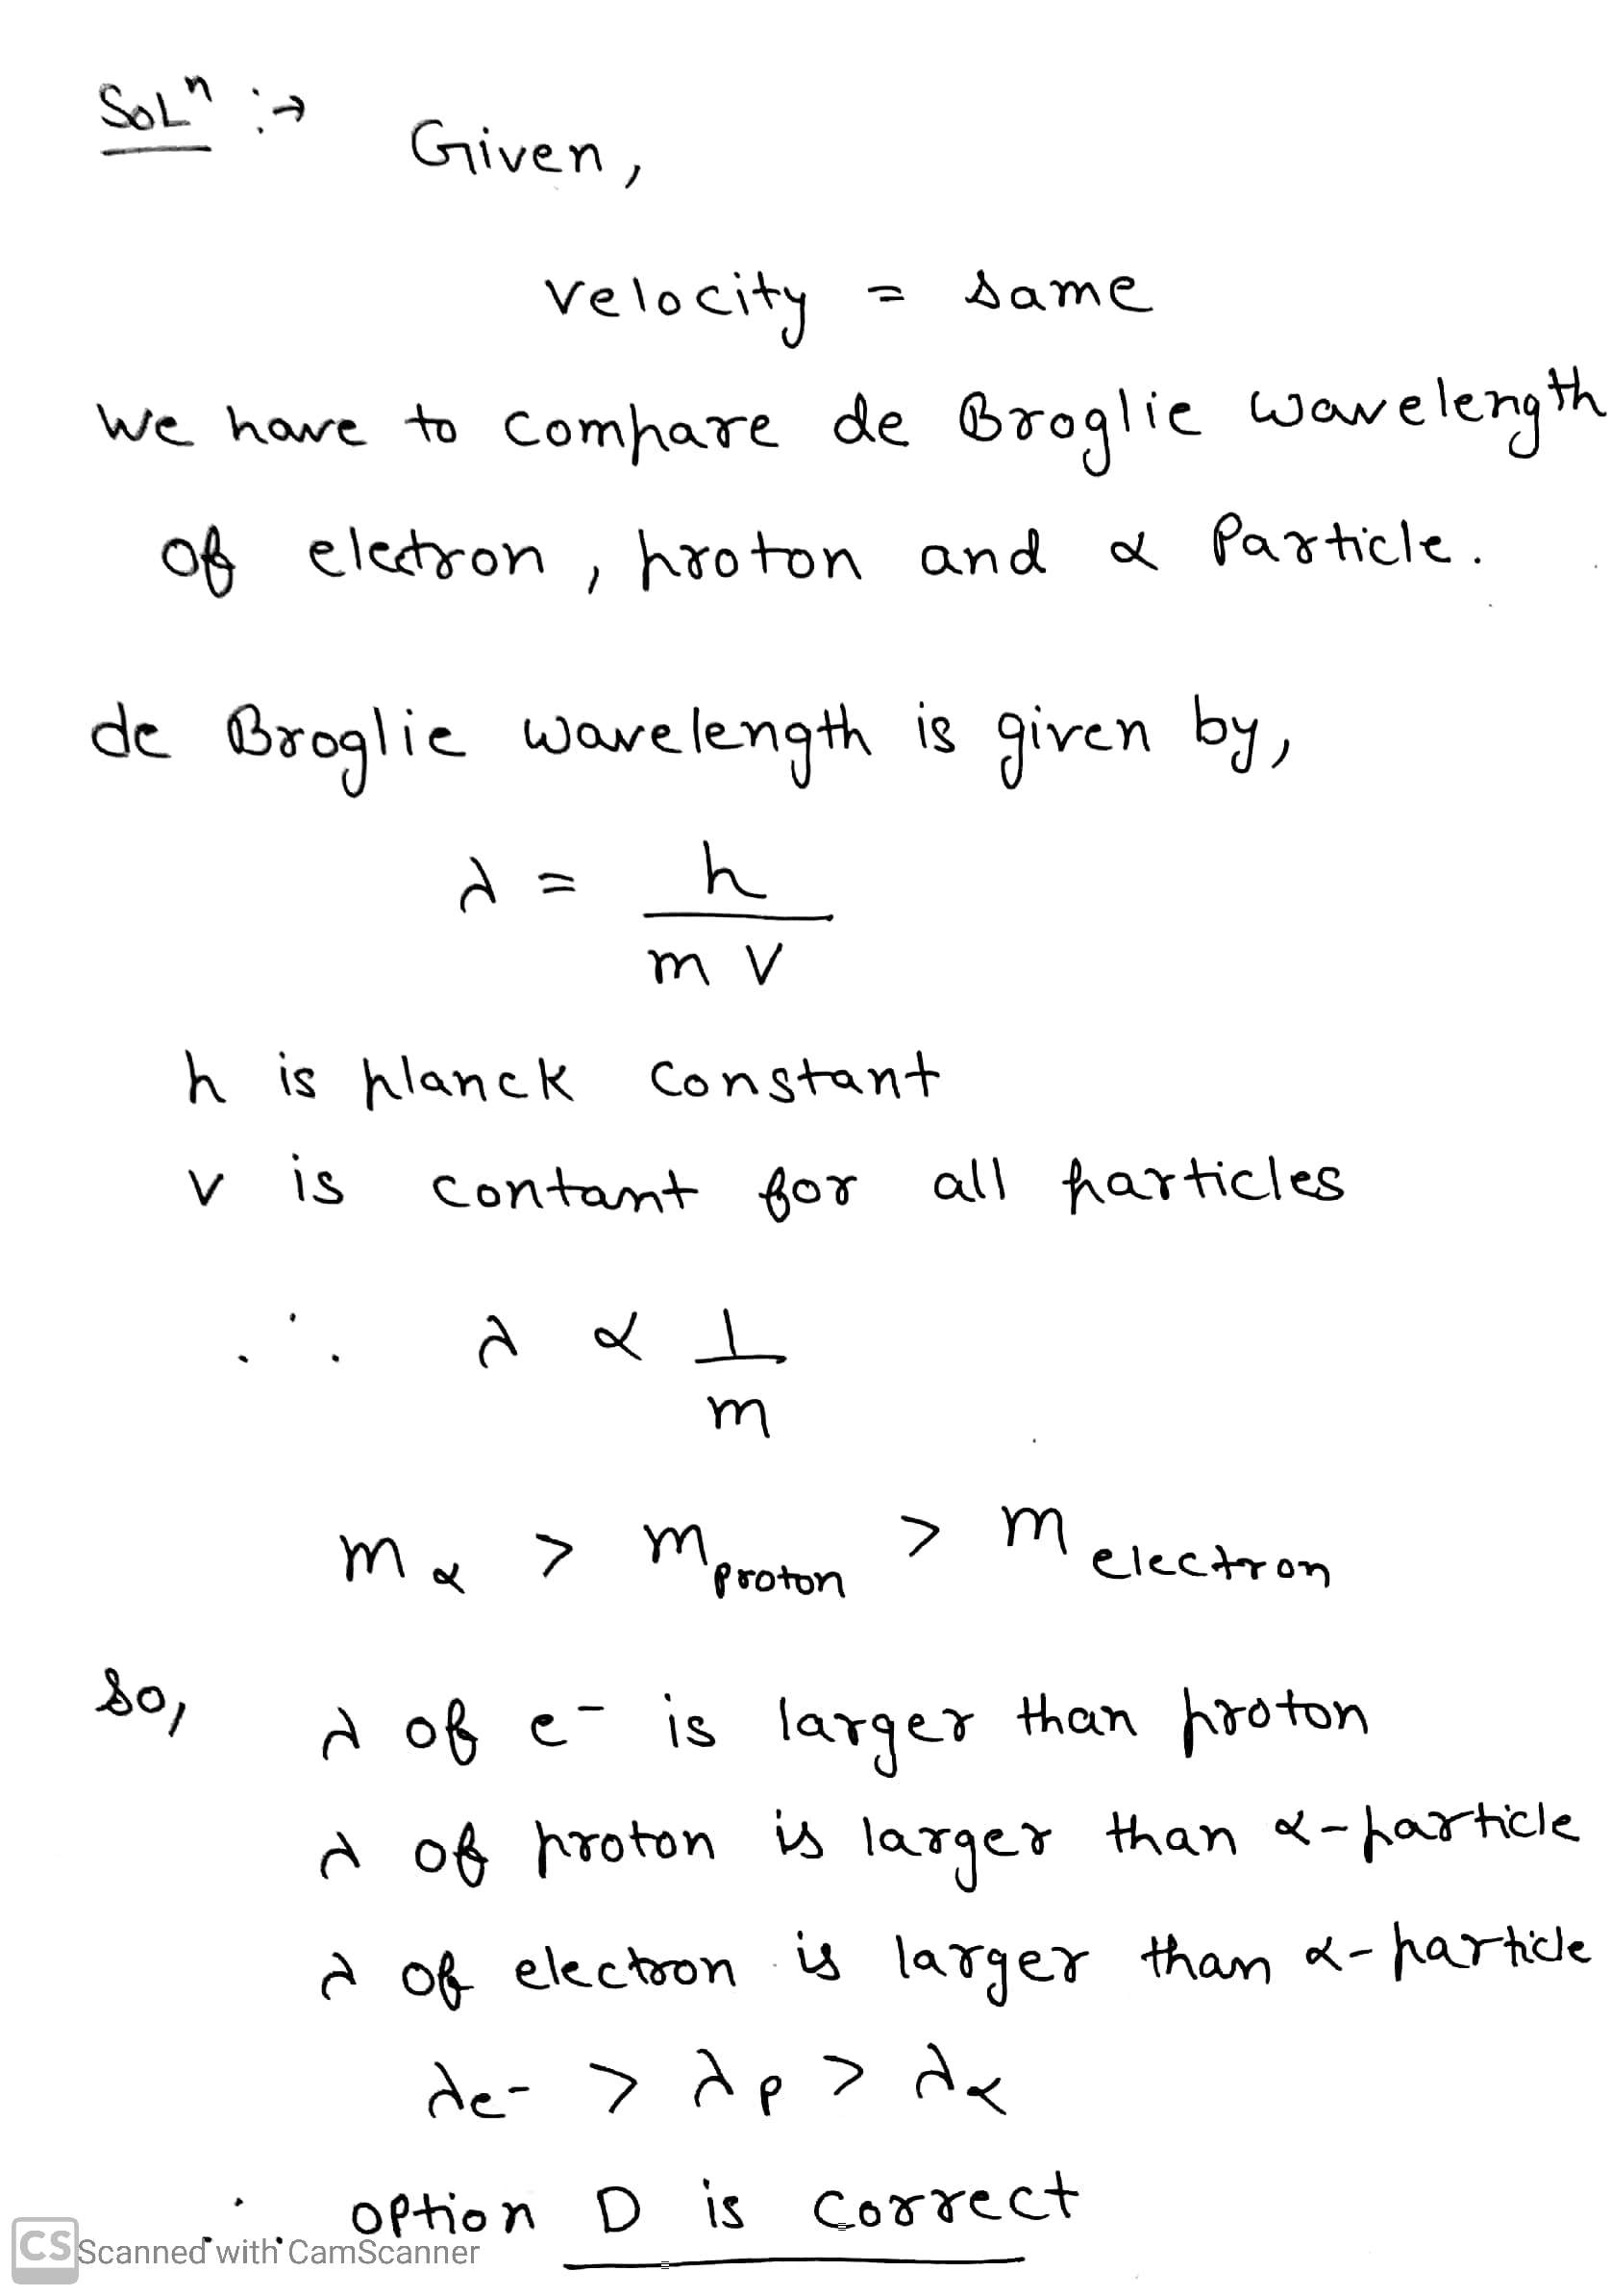 Solⁿ :→ Given,
velocity = same
we have to compare de Broglie wavelength
of electron, proton and α Particle.
de Broglie wavelength is given by,
λ = h
m v
h is planck constant
v is contant for all particles
∴ λ α 1
m
mα > mproton > melectron
So, λ of e⁻ is larger than proton
λ of proton is larger than α-particle
λ of electron is larger than α-particle
λe⁻ > λp > λα
∴ option D is correct
CS Scanned with CamScanner